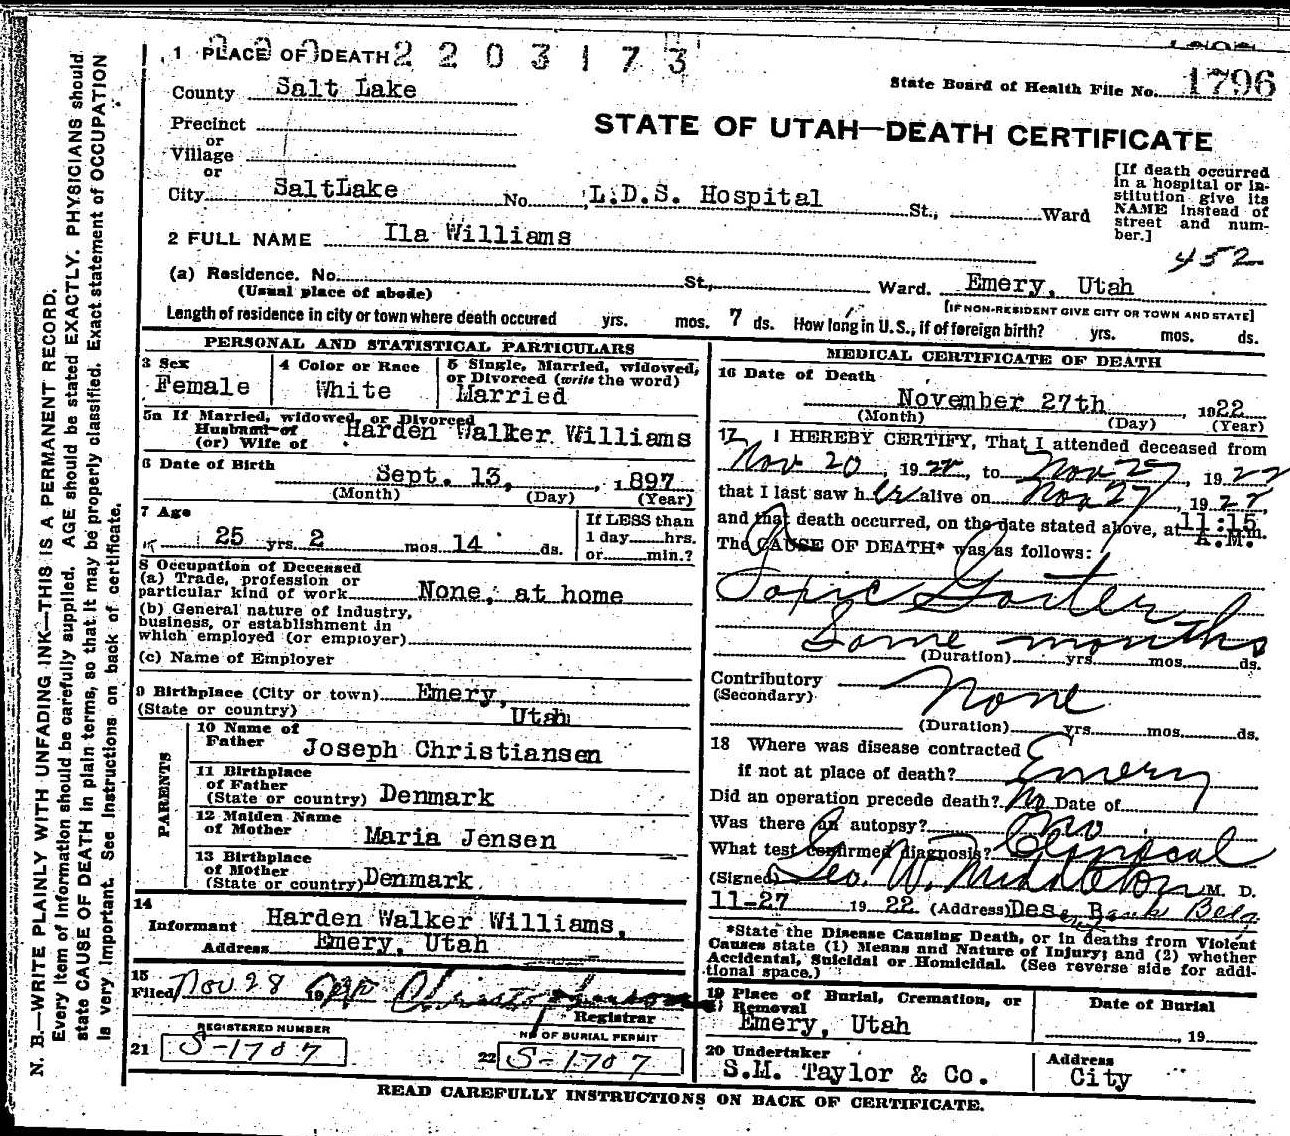 1 PLACE OF DEATH 2 2 0 3 1 7 3
State Board of Health File No. 1796
County Salt Lake
STATE OF UTAH—DEATH CERTIFICATE
Precinct
or
Village
or
City SaltLake No. L.D.S. Hospital St., Ward
[If death occurred in a hospital or institution give its NAME instead of street and number.]
2 FULL NAME Ila Williams
452
(a) Residence. No. St., Ward. Emery, Utah
(Usual place of abode) [IF NON-RESIDENT GIVE CITY OR TOWN AND STATE]
Length of residence in city or town where death occured yrs. mos. 7 ds. How long in U.S., if of foreign birth? yrs. mos. ds.
PERSONAL AND STATISTICAL PARTICULARS
3 Sex Female
4 Color or Race White
5 Single, Married, widowed, or Divorced (write the word) Married
5a If Married, widowed, or Divorced
Husband of
(or) Wife of Harden Walker Williams
6 Date of Birth Sept. 13, 1897
(Month) (Day) (Year)
7 Age 25 yrs. 2 mos. 14 ds.
If LESS than
1 day hrs.
or min.?
8 Occupation of Deceased
(a) Trade, profession or
particular kind of work None, at home
(b) General nature of Industry,
business, or establishment in
which employed (or employer)
(c) Name of Employer
9 Birthplace (City or town) Emery,
(State or country) Utah
PARENTS
10 Name of
Father Joseph Christiansen
11 Birthplace
of Father
(State or country) Denmark
12 Maiden Name
of Mother Maria Jensen
13 Birthplace
of Mother
(State or country) Denmark
14
Informant Harden Walker Williams,
Address Emery, Utah
15
Filed Nov 28 19
Registrar
REGISTERED NUMBER
21 S-1787
NO OF BURIAL PERMIT
22 S-1787
MEDICAL CERTIFICATE OF DEATH
16 Date of Death
November 27th, 1922
(Month) (Day) (Year)
17 I HEREBY CERTIFY, That I attended deceased from
Nov 20, 1922, to Nov 27, 1922
that I last saw her alive on Nov 27, 1922,
and that death occurred, on the date stated above, at 11:15 m.
A.M.
The CAUSE OF DEATH* was as follows:
Toxic Goiter
Some months
(Duration) yrs. mos. ds.
Contributory None
(Secondary)
(Duration) yrs. mos. ds.
18 Where was disease contracted
if not at place of death? Emery
Did an operation precede death? No Date of
Was there an autopsy? No
What test confirmed diagnosis? Clinical
(Signed) Geo. W. Middleton M. D.
11-27 1922 (Address) Des Bank Bldg
*State the Disease Causing Death, or in deaths from Violent
Causes state (1) Means and Nature of Injury; and (2) whether
Accidental, Suicidal or Homicidal. (See reverse side for addi-
tional space.)
19 Place of Burial, Cremation, or
Removal
Emery, Utah
Date of Burial
, 19
20 Undertaker
S.M. Taylor & Co.
Address
City
READ CAREFULLY INSTRUCTIONS ON BACK OF CERTIFICATE.
N. B.—WRITE PLAINLY WITH UNFADING INK—THIS IS A PERMANENT RECORD.
Every item of information should be carefully supplied. AGE should be stated EXACTLY. PHYSICIANS should
state CAUSE OF DEATH in plain terms, so that it may be properly classified. Exact statement of OCCUPATION
is very important. See instructions on back of certificate.